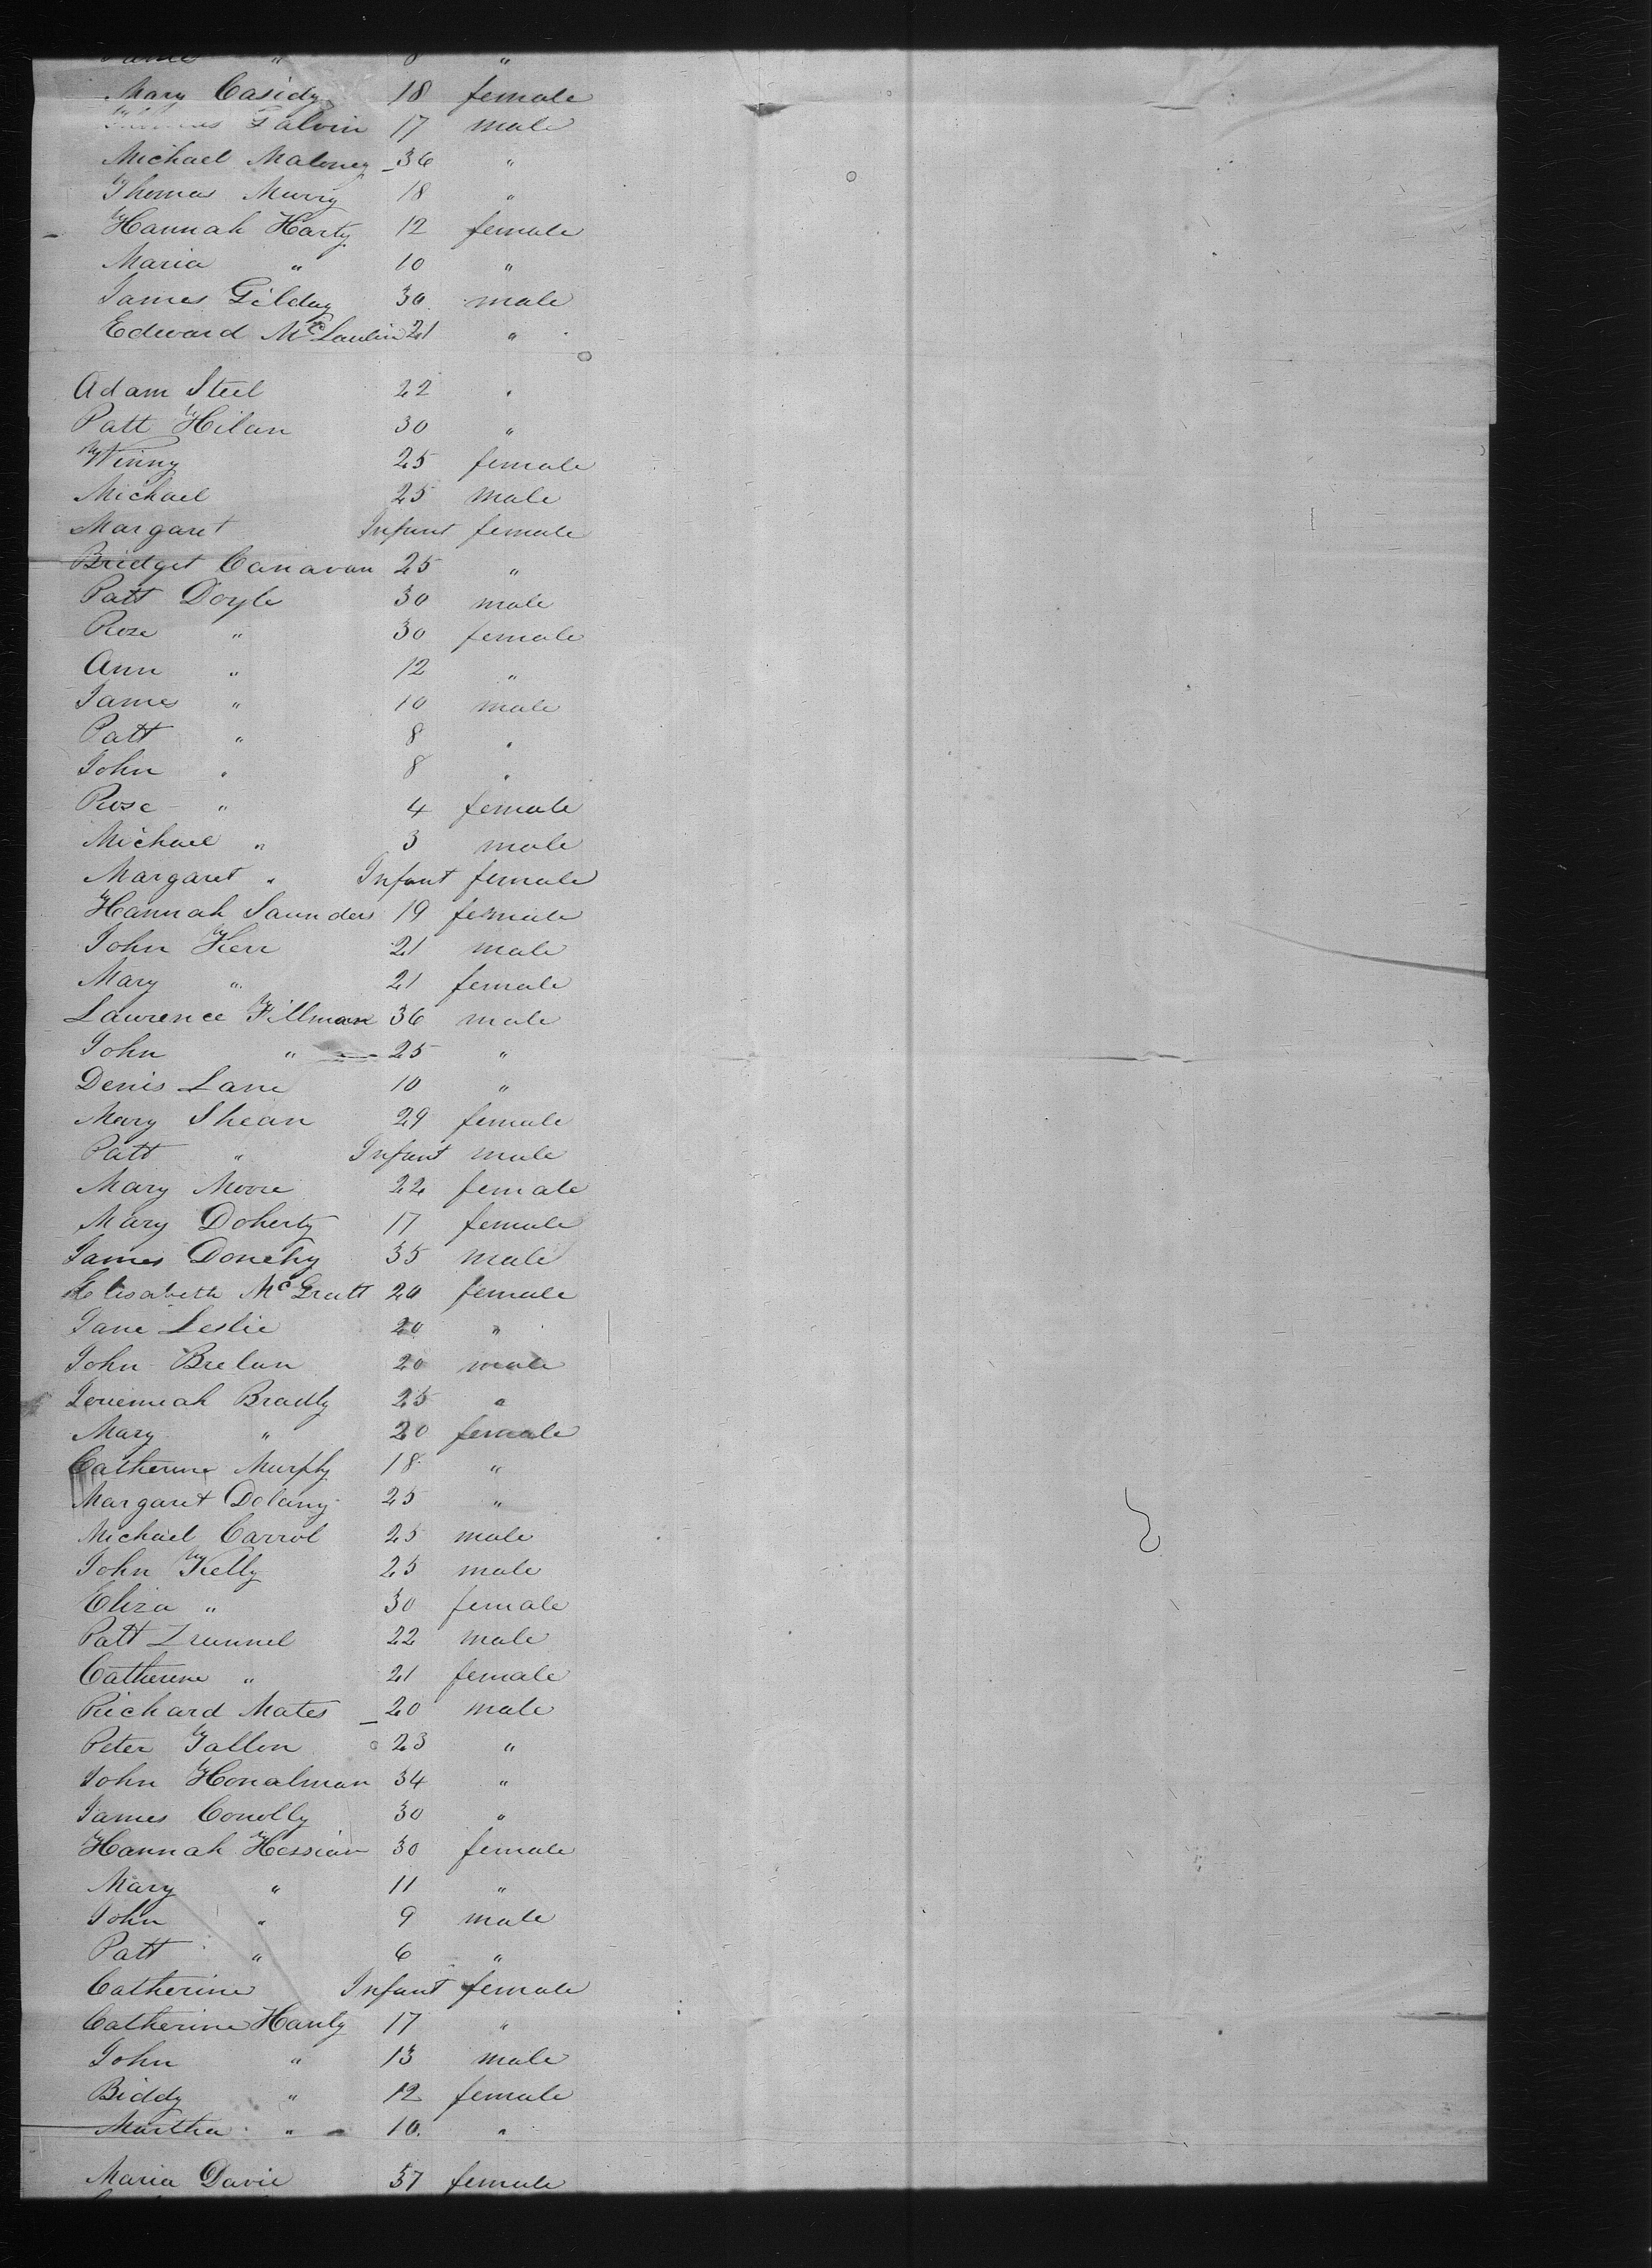 " 8 "
Mary Casidy 18 female
Galvin 17 male
Michael Maloney 36 "
Thomas Murry 18 "
Hannah Harty 12 female
Maria " 10 "
James Gilday 30 male
Edward McLaulin 21 "
Adam Steel 22 "
Patt Hilan 30 "
Winny 25 female
Michael 25 male
Margaret Infant female
Bridget Canavan 25 "
Patt Doyle 30 male
Rose " 30 female
Ann " 12 "
James " 10 male
Patt " 8 "
John " 8 "
Rose " 4 female
Michael " 3 male
Margaret " Infant female
Hannah Saunders 19 female
John Kerr 21 male
Mary " 21 female
Lawrence Fillman 36 male
John " 25 "
Denis Lane 10 "
Mary Shean 29 female
Patt " Infant male
Mary Moore 22 female
Mary Doherty 17 female
James Donehy 35 male
Elisabeth McGratt 20 female
Jane Leslie 20 "
John Brelan 20 male
Jeremiah Bradly 25 "
Mary " 20 female
Catherine Murphy 18 "
Margaret Dolany 25 "
Michael Carrol 25 male
John Kelly 25 male
Eliza " 30 female
Patt 22 male
Catherine " 21 female
Richard Mates 20 male
Peter Fallon 23 "
John Honalman 34 "
James Conolly 30 "
Hannah Hession 30 female
Mary " 11 "
John " 9 male
Patt " 6 "
Catherine Infant female
Catherine Hanly 17 "
John " 13 male
Biddy " 12 female
Martha " 10 "
Maria Davie 37 female